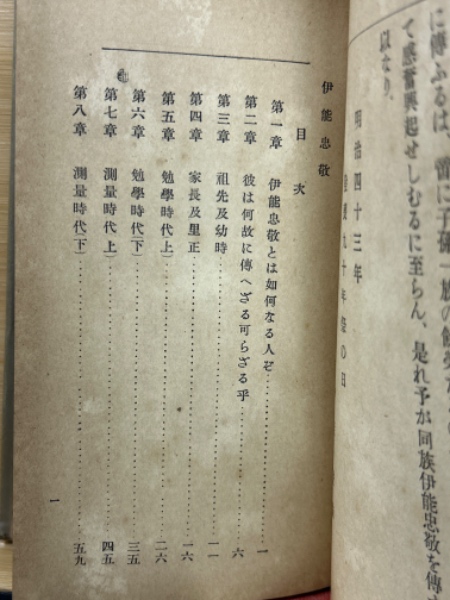 に傳ふるは、啻に子孫一族の
て感奮興起せしむるに至らん、是れ予が同族伊能忠敬を傳
以なり、
明治四十三年
九十年祭の日
伊能忠敬
目次
第一章 伊能忠敬とは如何なる人ぞ……一
第二章 彼は何故に傳へざる可らざる乎……六
第三章 祖先及幼時……一一
第四章 家長及里正……一六
第五章 勉學時代(上)……二六
第六章 勉學時代(下)……三五
第七章 測量時代(上)……四五
第八章 測量時代(下)……五九
一